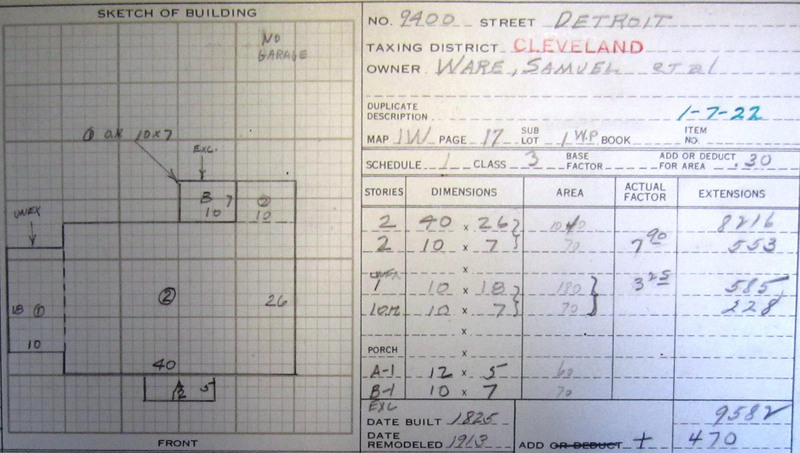 SKETCH OF BUILDING
NO
GARAGE
10 x 7
EXC.
B 7
10
②
10
UNEX
18 ①
10
②
26
40
5
FRONT
NO. 9400 STREET DETROIT
TAXING DISTRICT CLEVELAND
OWNER WARE, SAMUEL et al
DUPLICATE
DESCRIPTION
1-7-22
MAP 1W PAGE 17 SUB LOT 1 W.P. BOOK ITEM NO.
SCHEDULE 1 CLASS 3 BASE FACTOR ADD OR DEDUCT FOR AREA .30
STORIES DIMENSIONS AREA ACTUAL FACTOR EXTENSIONS
2 40 x 26 1040 8216
2 10 x 7 70 7 90 553
x
UNEX
1 10 x 18 180 3 25 585
10 x 7 70 228
x
PORCH x
A-1 12 x 5 60
B-1 10 x 7 70
EXC
DATE BUILT 1825 9582
DATE
REMODELED 1913 ADD OR DEDUCT + 470